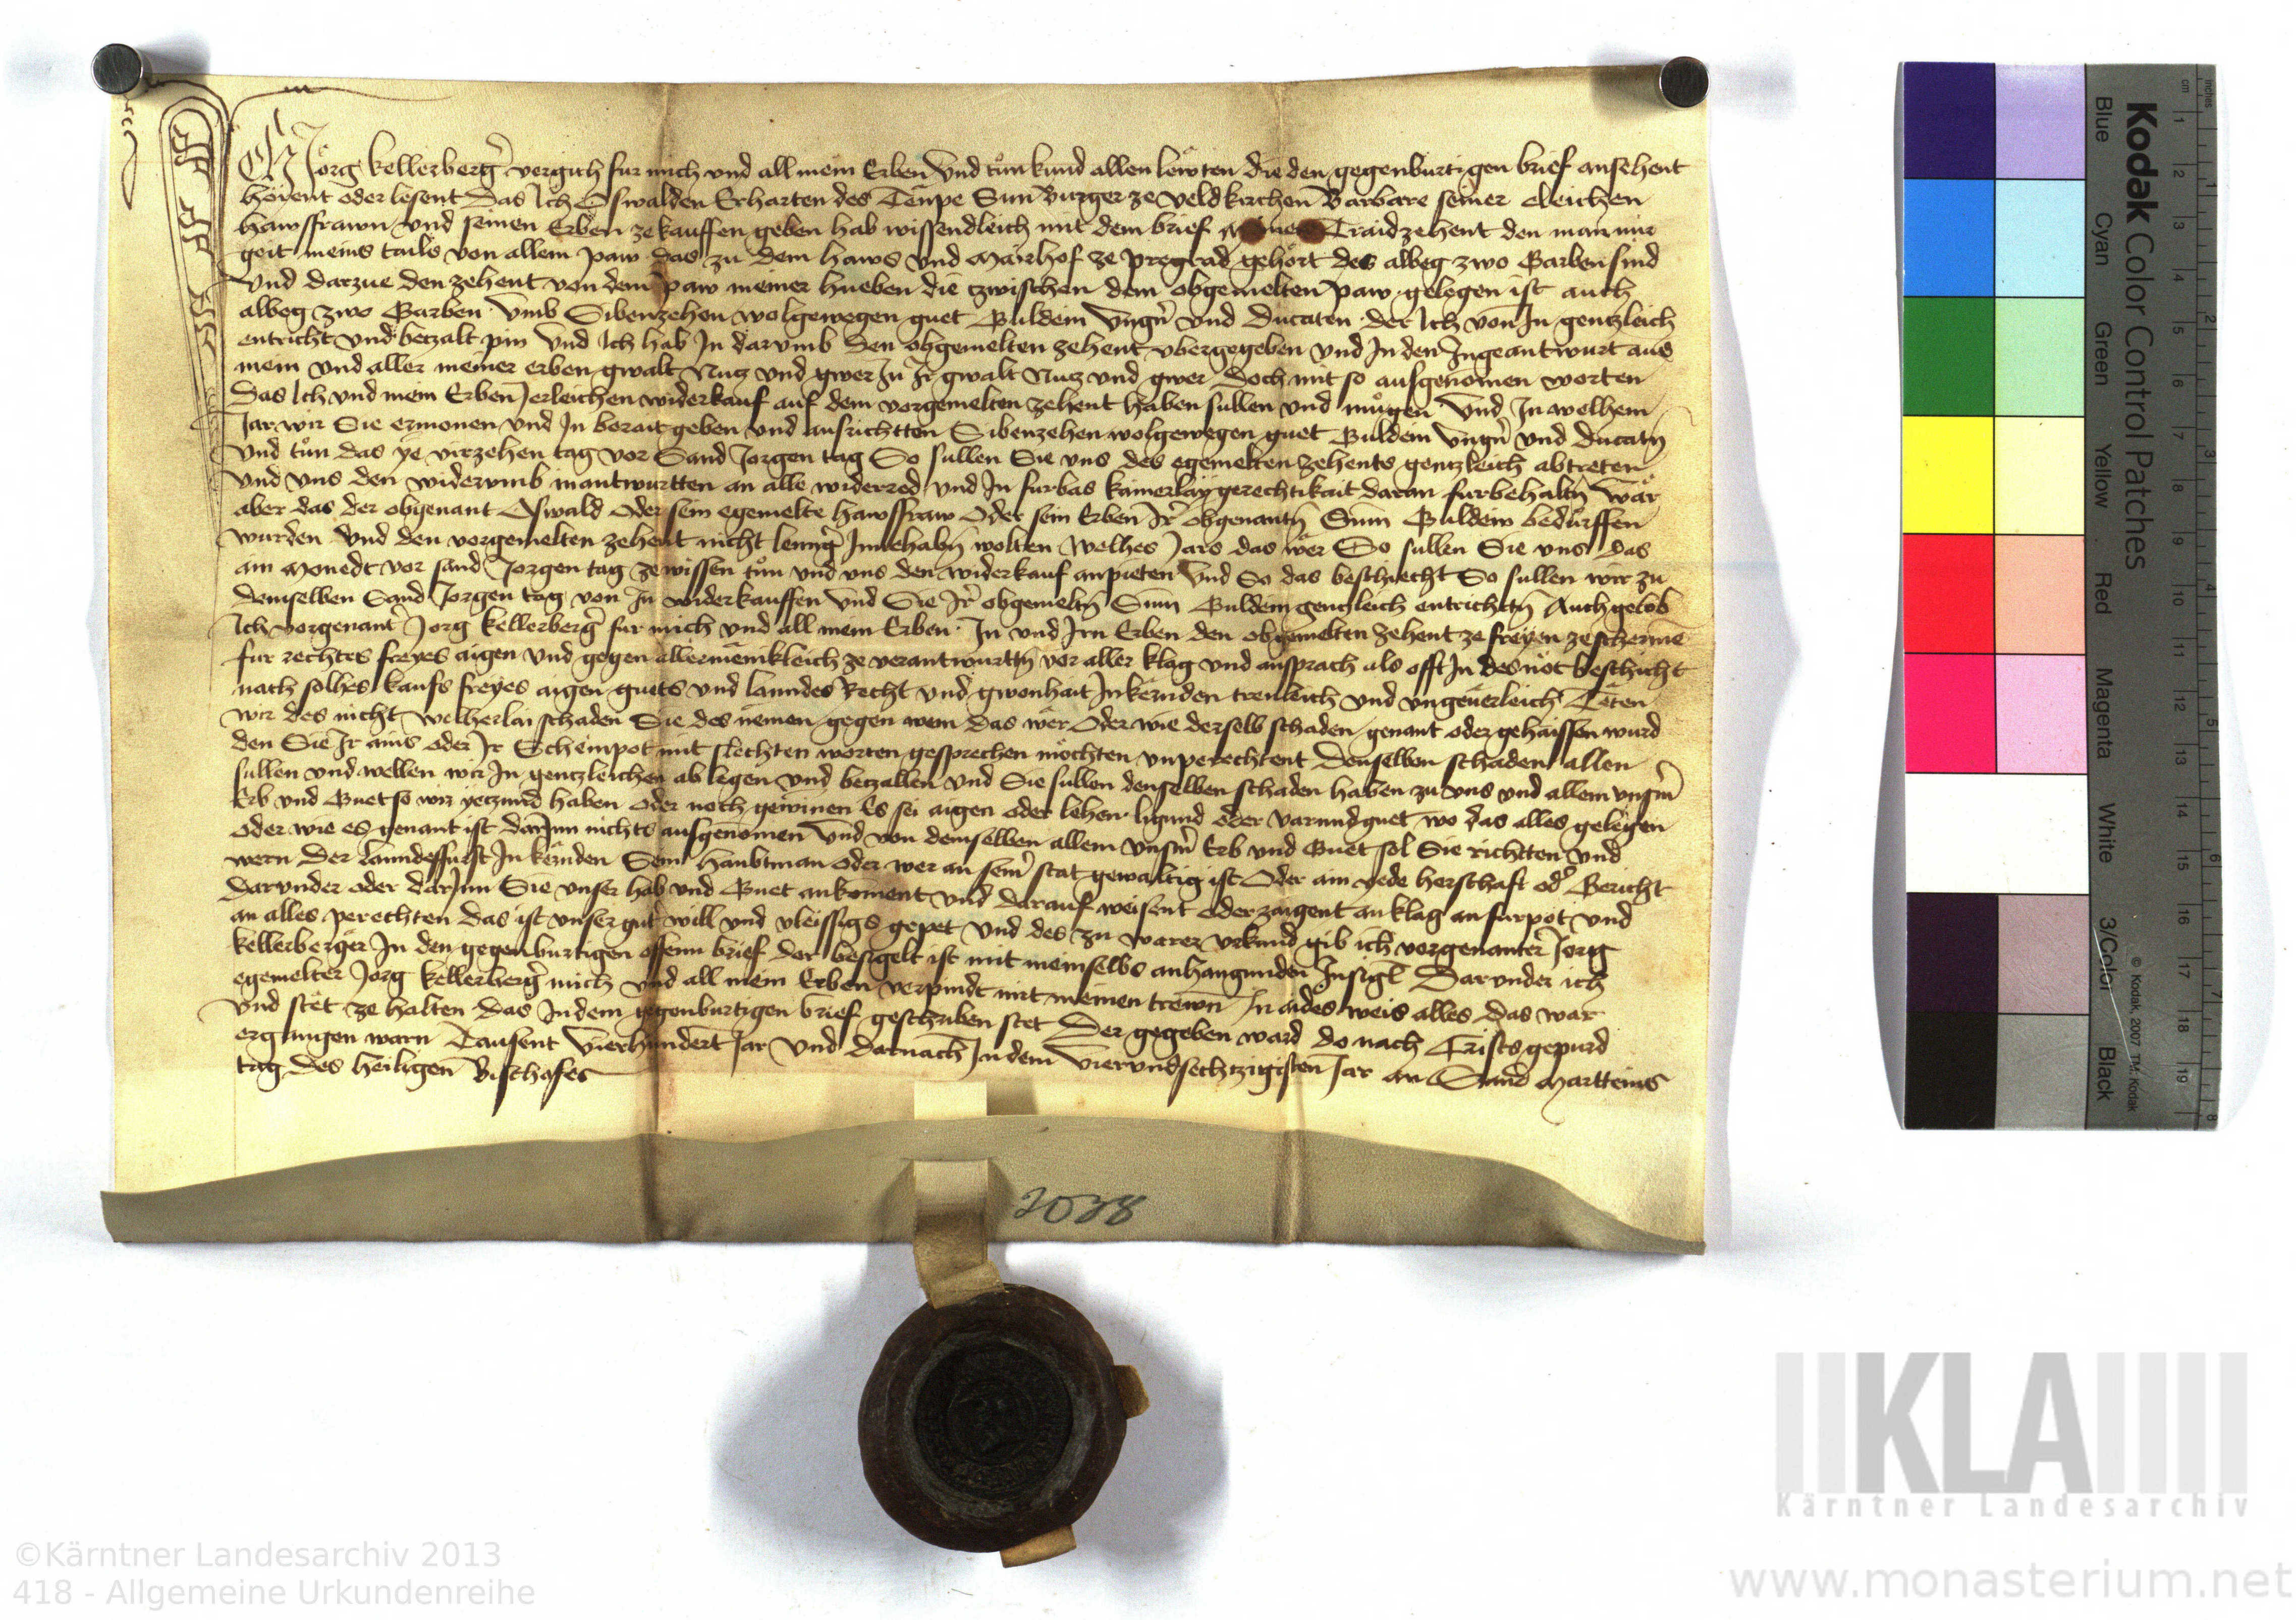 Ich Jorg kellerberger vergich fur mich vnd all mein Erben Vnd tůn kund allen lewten die den gegenburtigen brief ansehent
hörent oder lesent Das Ich Oswalden Erharten des Tempe Sun Burger ze veldkirchen Barbare seiner eleichen
hawsfrawn vnd seinen Erben ze kauffen geben hab wissendleich mit dem brief Traidzehent den man mir
geit meins tails von allem paw das zu dem haws vnd Mairhof ze pregrad gehört des albeg zwo Garben sind
Vnd darzue den zehent von dem paw meiner hueben die zwischen dem obgemelten paw gelegen ist auch
albeg zwo Garben Vmb Sibenzehen wolgewegen guet Guldein Vngr̄ vnd Ducaten der Ich von In gentzleich
entricht vnd betzalt pin Vnd Ich hab In darvmb Den obgemelten zehent vbergegeben vnd In den Ingeantwurt aus
mein vnd aller meiner erben gwalt Nutz vnd gwer In Ir gwalt Nutz vnd gwer Doch mit so ausgenomen worten
Das Ich vnd mein Erben Jerleichen widerkauf auf dem vorgemelten zehent haben sullen vnd mugen Vnd In welhem
Jar wir Sie ermonen vnd In berait geben vnd ausrichtten Sibenzehen wolgewegen guet Guldein Vngr̄ vnd Ducatn̄
Vnd tůn das ye virzehen tag vor Sand Jorgen tag So sullen Sie vns des egemelten zehents gentzleich abtreten
Vnd vns den widervmb inantwurtten an alle widerred vnd In furbas kainerlay gerechtikait daran furbehaltn̄ Wär
aber das der obgenant Oswald Oder sein egemelte hawsfraw Oder sein Erben Ir obgenantn̄ Sum Guldein bedurffen
wurden Vnd den vorgemelten zehent nicht lenngr̄ Innehabn̄ wolten Welhes Jars das wer So sullen Sie vns das
ain Monedt vor sand Jorgen tag ze wissen tůn vnd vns den widerkauf anpieten Vnd So das beschiecht So sullen wir zu
demselben Sand Jorgen tag von In widerkauffen Vnd Sie Ir obgemeltn̄ Sum Guldein gentzleich entrichtn̄ Auch gelob
Ich vorgenant Jorg kellerberger fur mich vnd all mein Erben In vnd Irn Erben den obgemelten zehent ze freyen ze schermē
fur rechtes freyes aigen vnd gegen allermenikleich ze verantwurttn̄ vor aller klag vnd ansprach als offt In des not beschicht
nach solhes kaufs freyes aigen guets vnd lanndes Recht vnd gwonhait In kernden trewleich vnd vngeuerleich Teten
wir des nicht Welherlai schaden Sie des nemen gegen wem das wer Oder wie derselb schaden genant oder gehaissen wurd
den Sie Ir ains oder Ir Scheinpot mit slechten worten gesprechen mochten vnperechtent Denselben schaden allen
sullen vnd wellen wir In gentzleichen ab legen vnd betzallen Vnd Sie sullen denselben schaden haben zu vns vnd allem vnserm
Erb vnd Guet so wir yetzund haben oder noch gewinen Es sei aigen oder lehen ligund oder Varundguet wo das alles gelegen
oder wie es genant ist darInn nichts ausgenomen Vnd von demselben allem vnserm Erb vnd Guet sol Sie richtten vnd
wern Der lanndesfurst In kernden Sein haubtman oder wer an seiner stat gewaltig ist Oder ain yede herschaft oder Gericht
Darvnder oder darInn Sie vnser hab vnd Guet ankoment Vnd darauf weisent oder zaigent an klag an furpot vnd
an alles perechten das ist vnser gut will vnd vleissigs gepet Vnd des zu warer vrkund gib ich vorgenanter Jorg
kellerberger In den gegenburtigen offenn brief der besigelt ist mit meinselbs anhangunden Insigl Darvnder ich
egemelter Jorg kellerberger mich vnd all mein Erben verpindt mit meinen trewn In aides weis alles das war
Vnd stet ze halten das In dem gegenburtigen brief geschriben stet Der gegeben ward do nach Cristi gepurd
ergangen warn Tausent Vierhundert Jar Vnd darnach In dem Vierundsechtzigisten Jar an Sand Marttems
tag des heiligen Bischofes
2038
Kodak Color Control Patches
Blue Cyan Green Yellow Red Magenta White 3/Color Black
© Kodak, 2007 TM: Kodak
KLA
Kärntner Landesarchiv
©Kärntner Landesarchiv 2013
418 - Allgemeine Urkundenreihe
www.monasterium.net